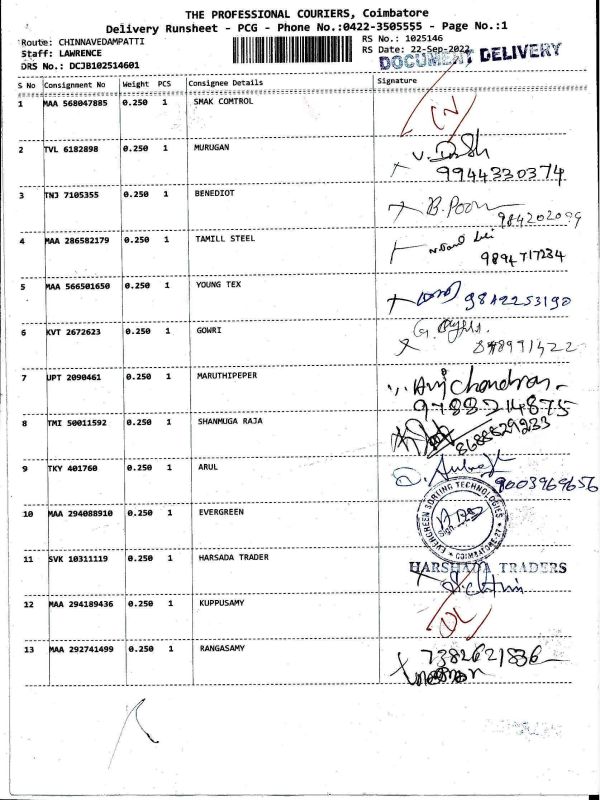 THE PROFESSIONAL COURIERS, Coimbatore
Delivery Runsheet - PCG - Phone No.:0422-3505555 - Page No.:1
Route: CHINNAVEDAMPATTI
RS No.: 1025146
Staff: LAWRENCE
RS Date: 22-Sep-2022
DRS No.: DCJB102514601
DOCUMENT DELIVERY
S No Consignment No Weight PCS Consignee Details Signature
1 MAA 568047885 0.250 1 SMAK COMTROL
2 TVL 6182898 0.250 1 MURUGAN
9944330374
3 TNJ 7105355 0.250 1 BENEDIOT
B. Poon
4 MAA 286582179 0.250 1 TAMILL STEEL
9894717234
5 MAA 566501650 0.250 1 YOUNG TEX
9842253190
6 KVT 2672623 0.250 1 GOWRI
7 UPT 2090461 0.250 1 MARUTHIPEPER
chandran
9788214875
8 TMI 50011592 0.250 1 SHANMUGA RAJA
8688829233
9 TKY 401760 0.250 1 ARUL
9003969656
10 MAA 294088910 0.250 1 EVERGREEN
EVERGREEN SORTING TECHNOLOGIES
COIMBATORE
11 SVK 10311119 0.250 1 HARSADA TRADER
HARSHADA TRADERS
12 MAA 294189436 0.250 1 KUPPUSAMY
13 MAA 292741499 0.250 1 RANGASAMY
7382621836